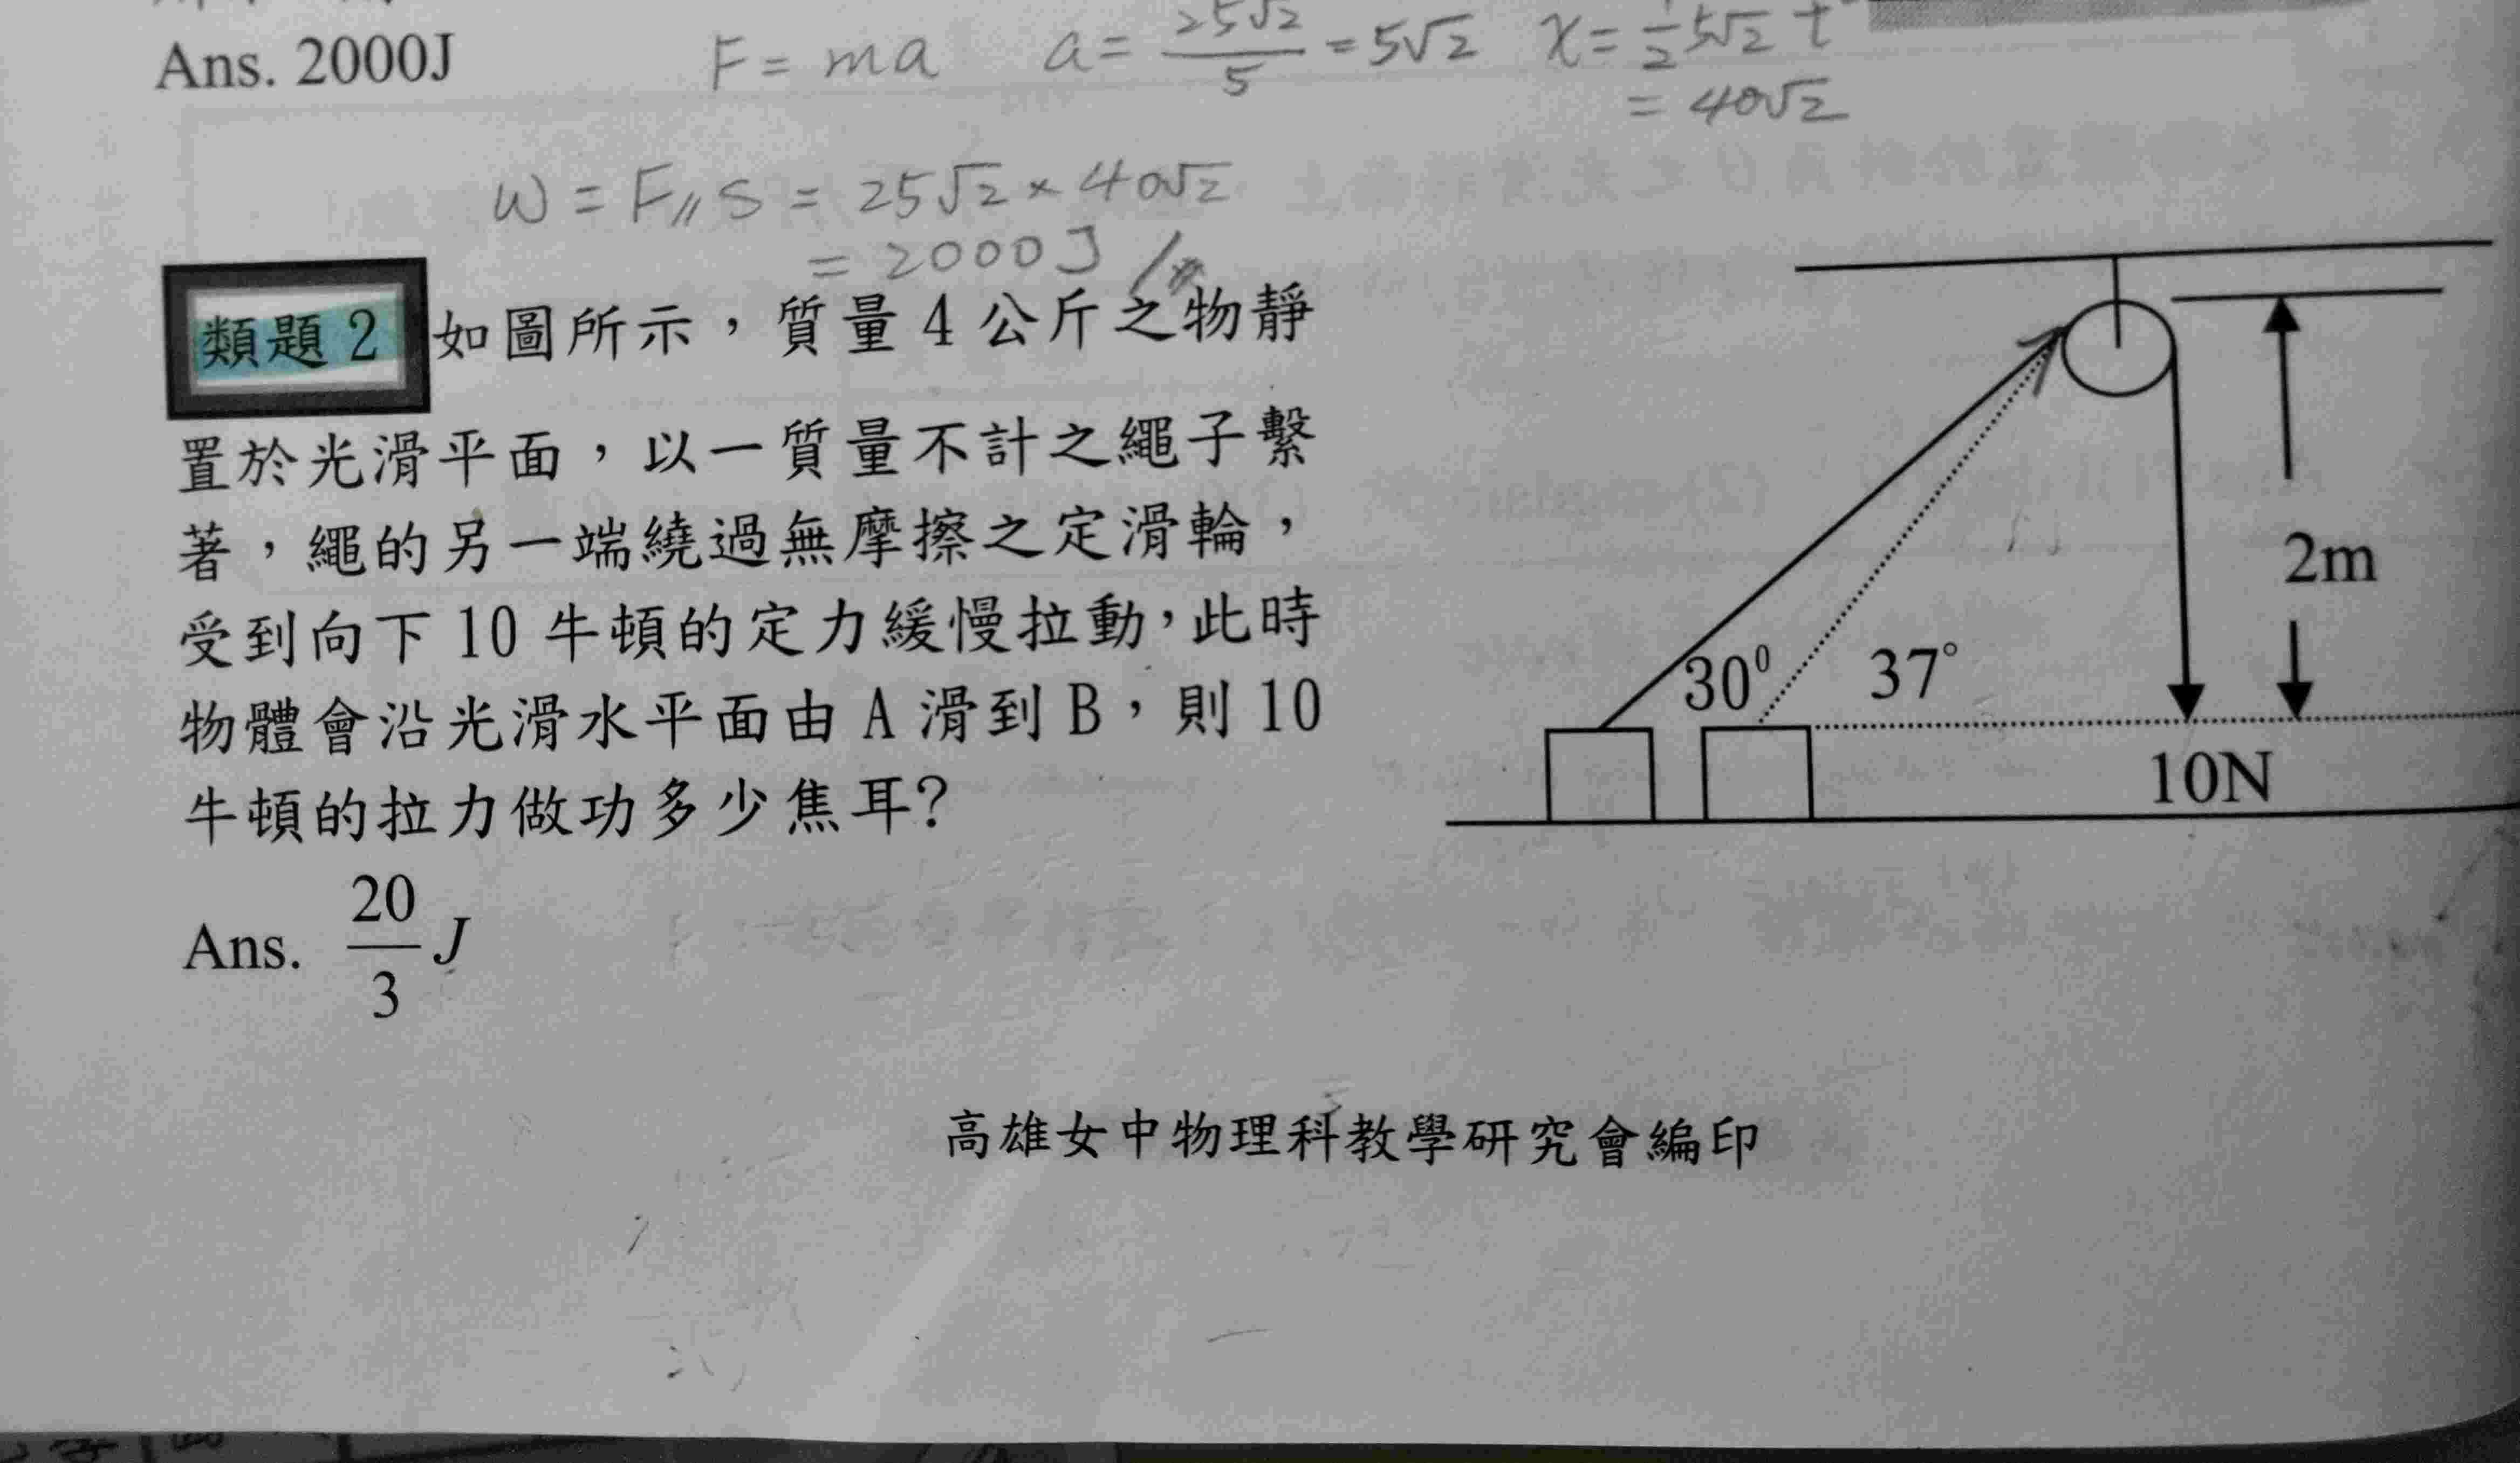 Ans. 2000J
F = ma
a = 25√2 / 5 = 5√2
x = 1/2 5√2 t
= 40√2
W = F∥ S = 25√2 × 40√2
= 2000J
類題 2 如圖所示，質量 4 公斤之物靜
置於光滑平面，以一質量不計之繩子繫
著，繩的另一端繞過無摩擦之定滑輪，
受到向下 10 牛頓的定力緩慢拉動，此時
物體會沿光滑水平面由 A 滑到 B，則 10
牛頓的拉力做功多少焦耳?
Ans. 20/3 J
2m
30⁰
37°
10N
高雄女中物理科教學研究會編印